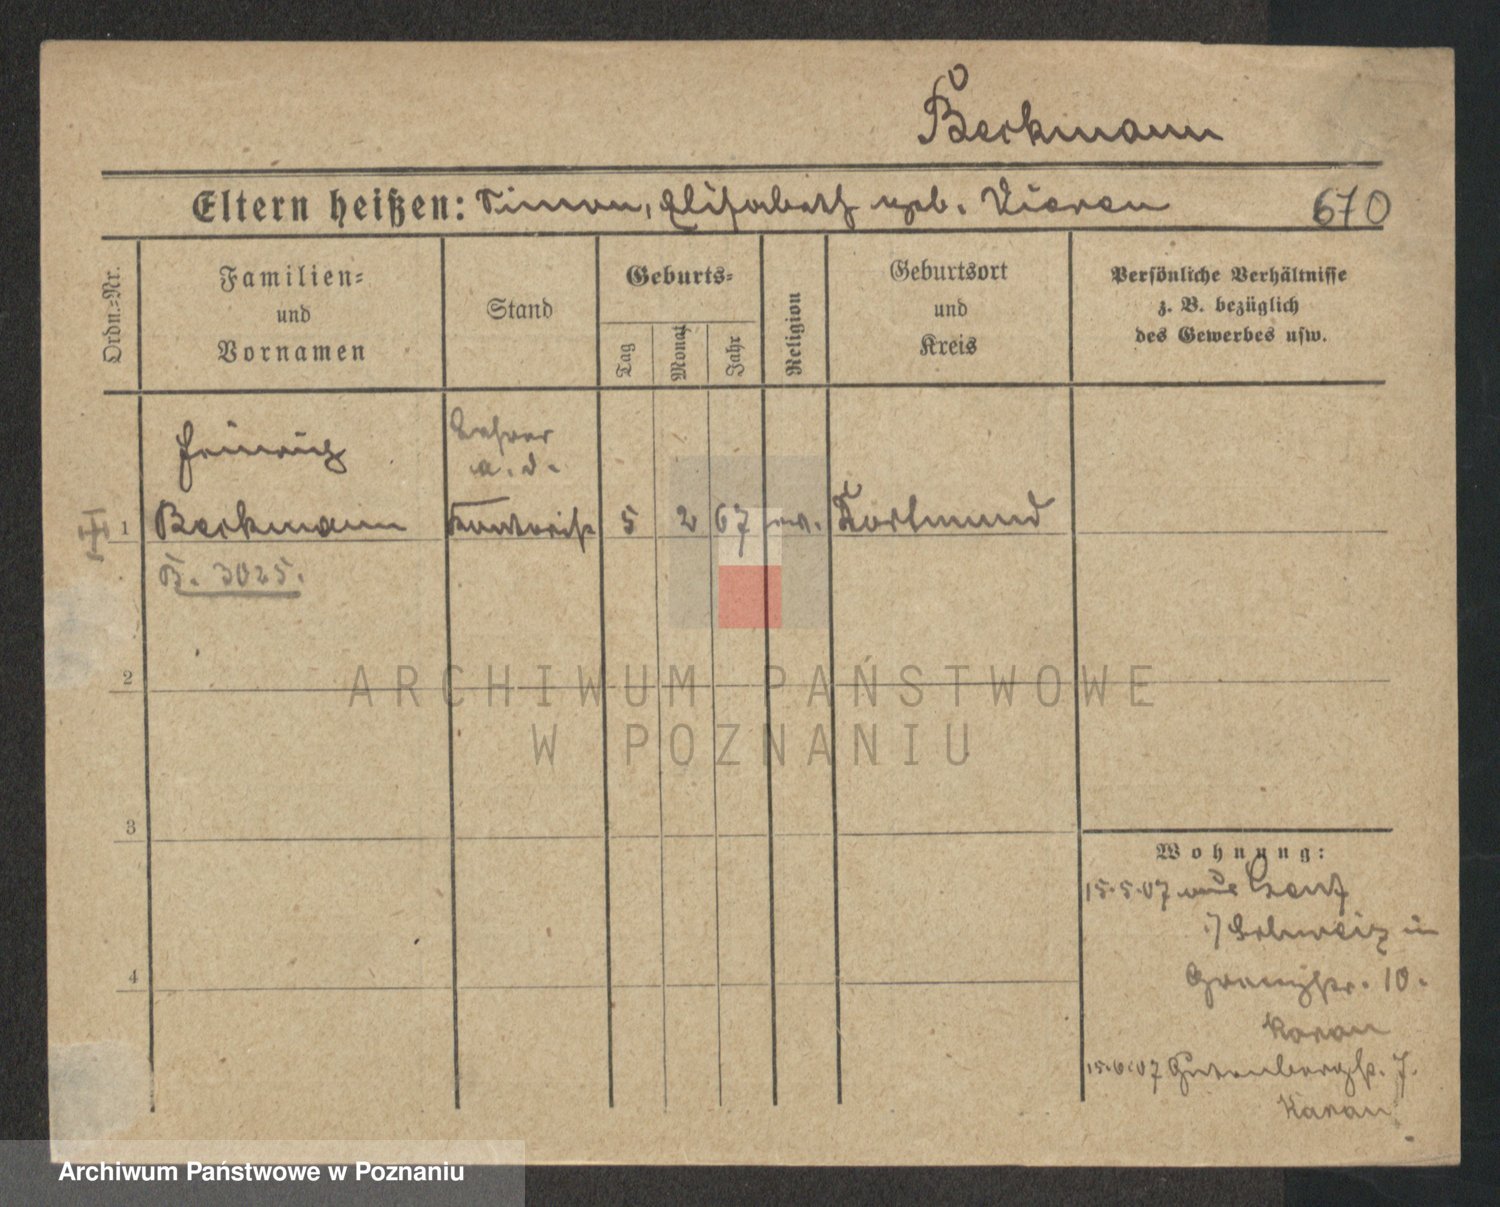 Beckmann
Eltern heißen: Simon, Elisabeth geb. 670
Ordn.=Nr.
Familien=
und
Vornamen
Stand
Geburts=
Tag
Monat
Jahr
Religion
Geburtsort
und
Kreis
Persönliche Verhältnisse
z. B. bezüglich
des Gewerbes usw.
Heinrich
Lehrer
a. d.
1 Beckmann 5 2 67 ev. Dortmund
B. 3025.
2
ARCHIWUM PAŃSTWOWE
W POZNANIU
3
4
Wohnung:
15.5.07 aus Genf
i/ Schweiz in
Grenzstr. 10.
15.6.07 Gutenbergstr. 7.
Archiwum Państwowe w Poznaniu